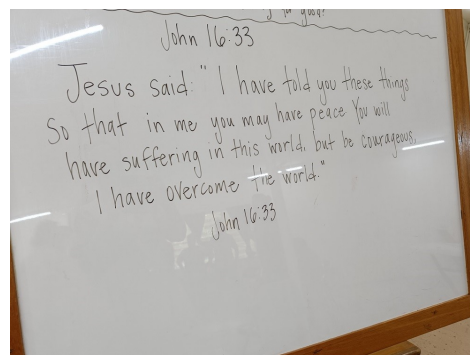 for good?
John 16:33
Jesus said: "I have told you these things
So that in me you may have peace. You will
have suffering in this world, but be courageous,
I have overcome the world."
John 16:33